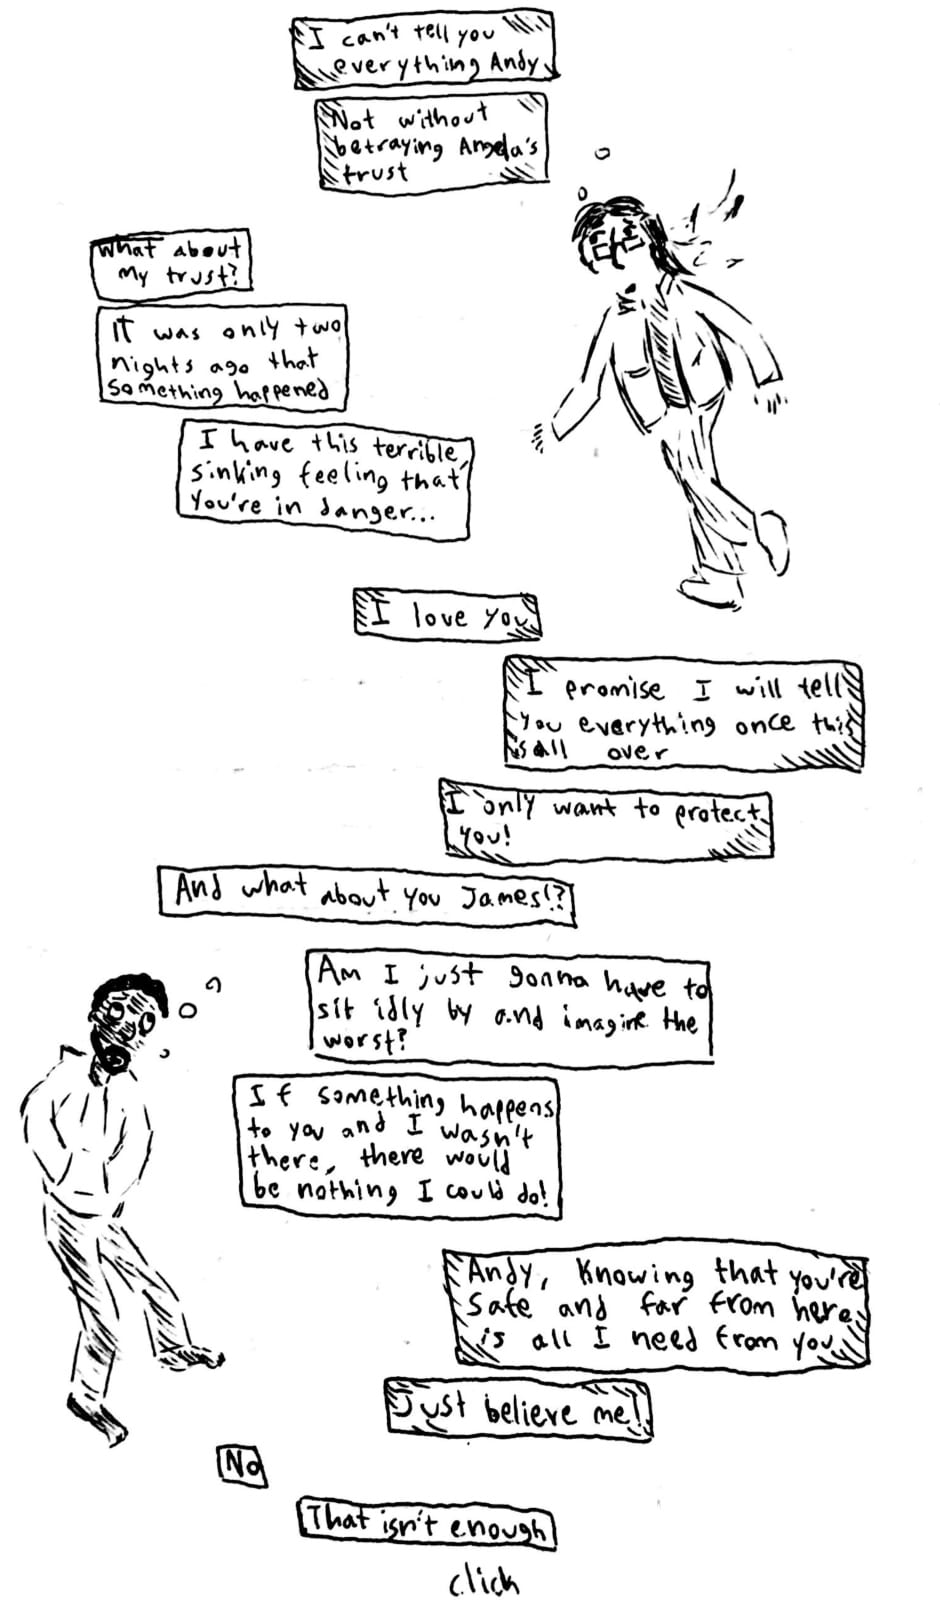 I can't tell you
everything Andy
Not without
betraying Angela's
trust
What about
my trust?
It was only two
nights ago that
something happened
I have this terrible,
sinking feeling that
you're in danger...
I love you
I promise I will tell
you everything once this
is all over
I only want to protect
you!
And what about you James!?
Am I just gonna have to
sit idly by and imagine the
worst?
If something happens
to you and I wasn't
there, there would
be nothing I could do!
Andy, knowing that you're
safe and far from here
is all I need from you
Just believe me!
No
That isn't enough
click